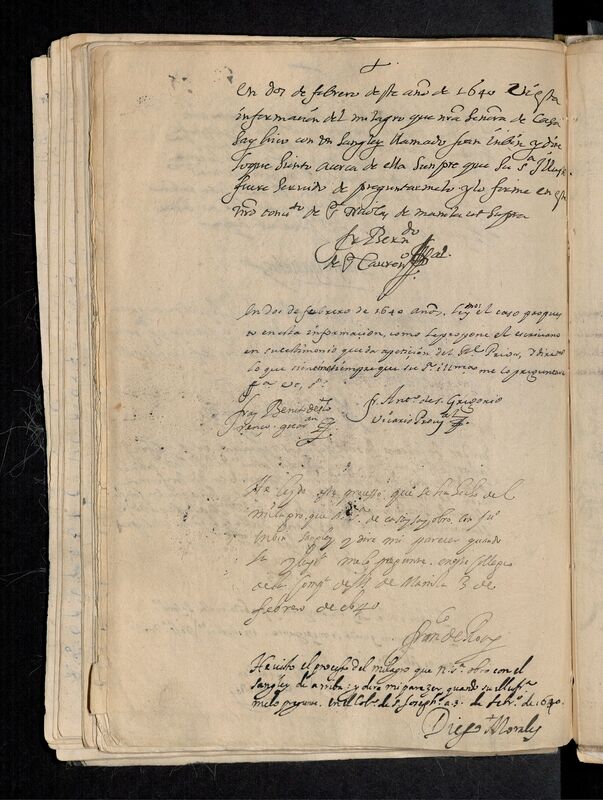 En dos de febrero deste año de 1640 Vi esta
información del milagro que nra Señora de Casa
Saybico con vn Sangley llamado Juan Inbin y dire
loque siento acerca de ella Sienpre que su Sa Illusa
fuere Servido de preguntarmelo y lo firme en este
nro conuto de S Nicolas de manila ut supra
fr Berndo
de S Laurenº
En dos de febrero de 1640 años. leymos el caso propues
to en esta informacion, como le propone el escriuano
en su testimonio que da a peticion del Prior, y diremos
lo que siempre que su Sª illma me lo preguntare
fray Benito de
fr Antº de S. Gregorio
Vicario Prouªl
He leydo este processo que se ha hecho del
milagro que de casaysay obro con Juº
Inbin sangley y dire mi parecer quando
Sa me lo pregunte. en este Collegio
de la Compª de Jhs de Manila 3 de
febrero de 1640
Franco de Roa
He visto el processo del milagro que nª Sª obro con el
sangley de arriba: y dire mi parezer quando su illussª
me lo pregunte. en el Colº de S. Josephº a 3 de febrº de 1640.
Diego Morales